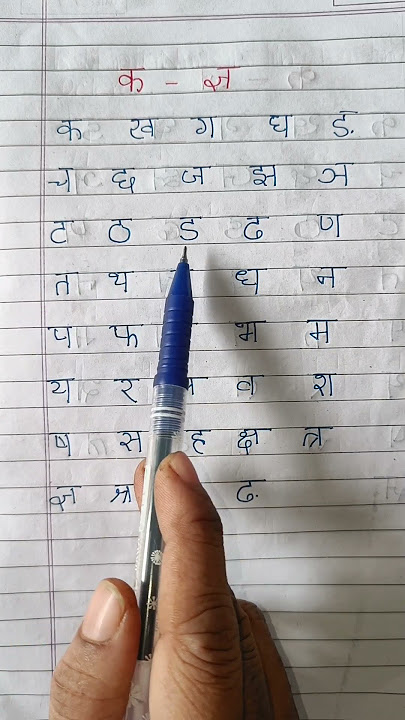 क - ज्ञ
क ख ग घ ङ
च छ ज झ ञ
ट ठ ड ढ ण
त थ ध न
प फ भ म
य र व श
ष स ह क्ष त्र
ज्ञ श्र ढ़